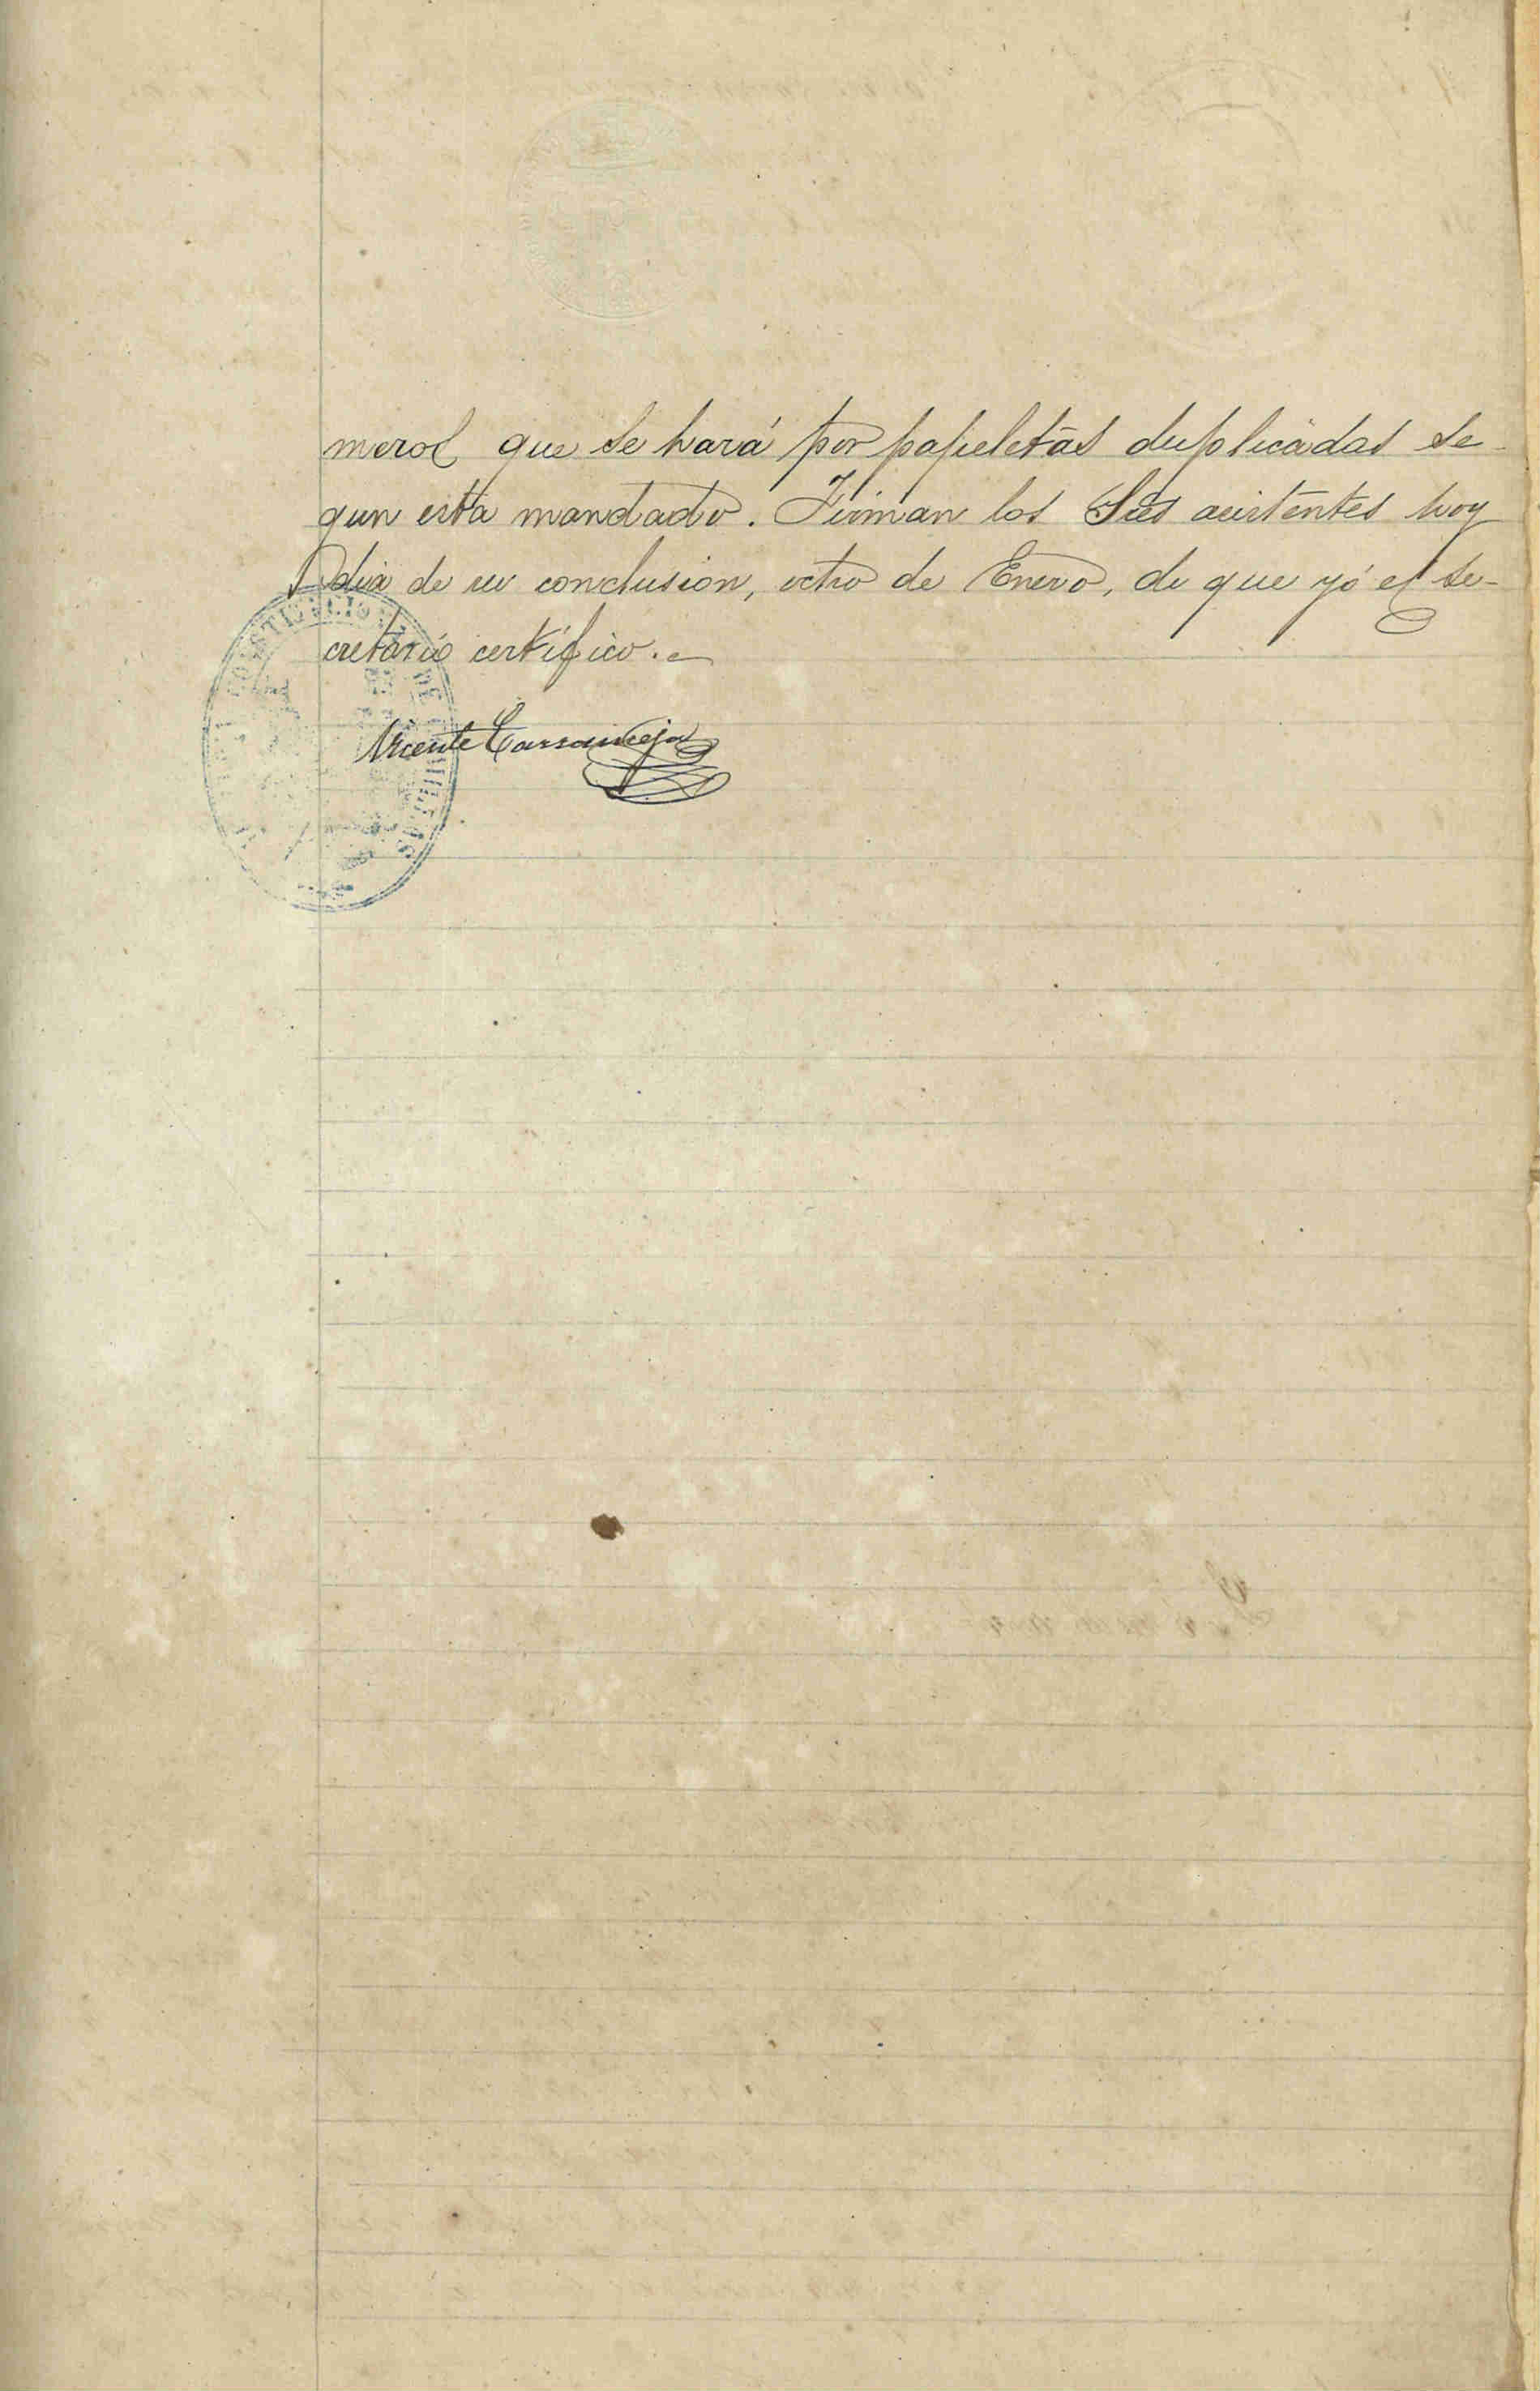 meros que se hará por papeletas duplicadas se-
gun esta mandado. Firman los Sres asistentes hoy
dia de su conclusion, ocho de Enero, de que yó el se-
cretario certifico.
Vicente Carranceja